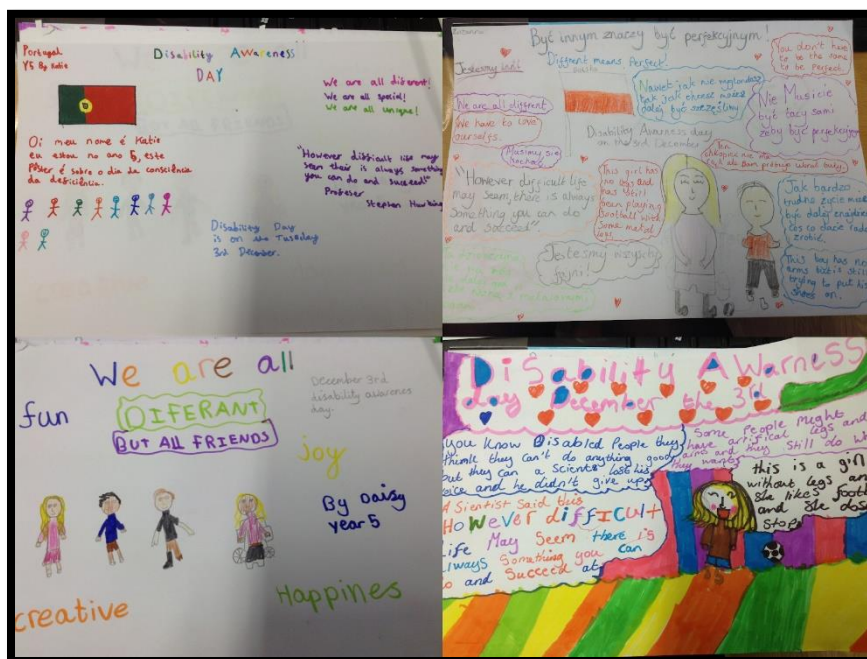 Portugal
Y5 By Katie
Disability Awareness
DAY
We are all different!
We are all special!
We are all unique!
Oi meu nome é Katie
eu estou no ano 5, este
Pôster é sobre o dia da consciência
da deficiência.
"However difficult life may
seem their is always something
you can do and succeed"
Profeser
Stephen Hawking
Disability Day
is on the Tuesday
3rd December.
Być innym znaczy być perfekcyjnym!
Diffrent means Perfect!
You don't have
to be the same
to be Perfect.
Jesteśmy
We are all diffrent
We have to love
ourselfs.
Musimy się
kochać
Nawet jak nie wyglondasz
tak jak chcesz możesz
dalej być szczęśliwy
Nie Musicie
być tacy sami
żeby być perfekcyjny
Disability Awarness day
on the 3rd December
"However difficult life
may seem, there is always
Something you can do
and succeed"
This girl has
no legs and
has still
been playing
with
Some metal
legs
Jesteśmy wszyscy
fajni!
Jak bardzo
trudne życie może
być dalej znajdzie
coś co dacie radę
zrobić.
This boy has no
arms but is still
trying to put his
shoes on.
We are all
fun
DIFERANT
BUT ALL FRIENDS
December 3rd
disability awarenes
day.
joy
By Daisy
year 5
creative
Happines
Disability AWarness
day December the 3rd
you know Disabled People they
think they can't do anything good
but they can a Scients lost his
voice and he didn't give up
Some People Might
have artifical legs and
arms and they Still do
they want
A Sientist Said this
However difficult
life May Seem there is
always Something you can
do and Succeed at
this is a girl
without legs an
She likes foot
and She dose
Stop